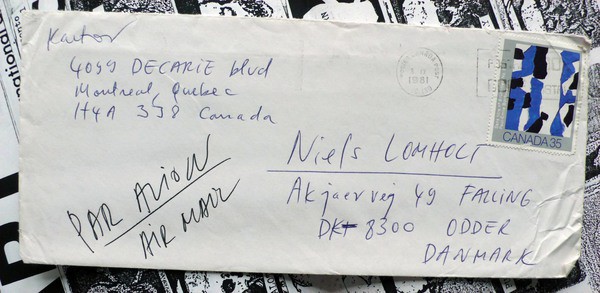 Kantor
4099 DECARIE blvd
Montreal, Quebec
H4A 3J8 Canada
CANADA 35
Niels LOMHOLT
Akjaervej 49 FALLING
DK 8300 ODDER
DANMARK
PAR AVION
AIR MAIL